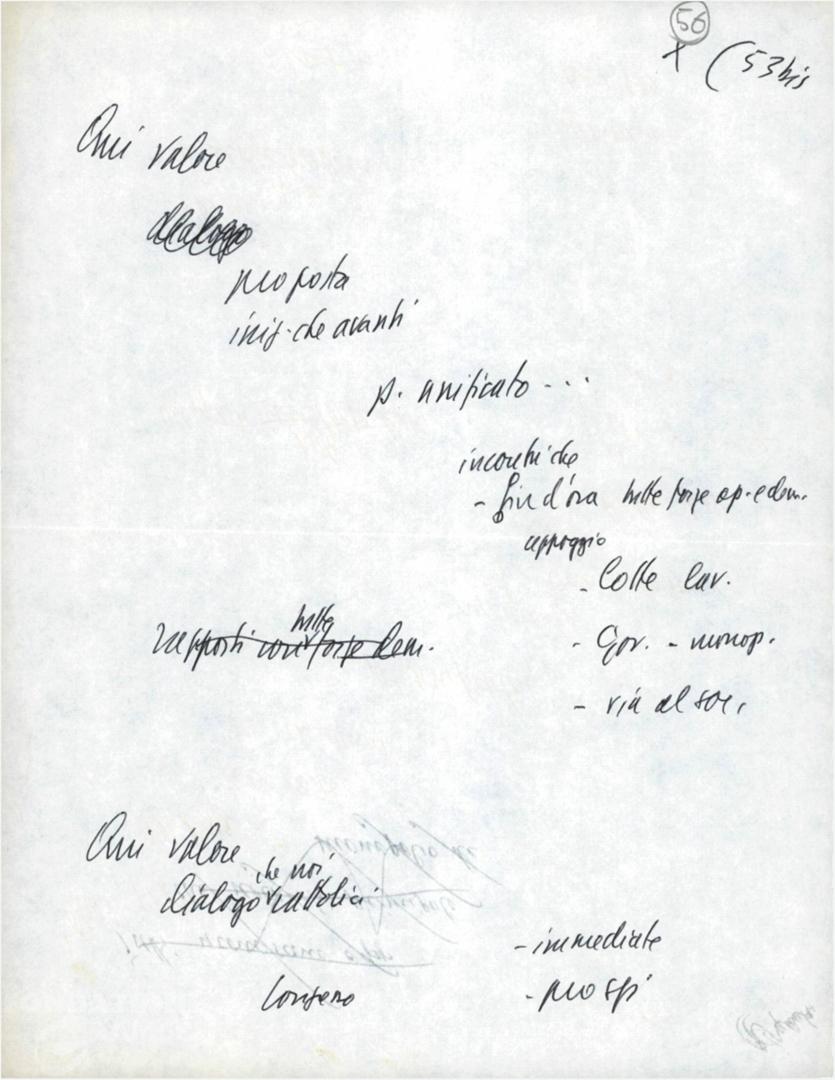 56
x (53 bis
Qui valore
dialogo
proposta
iniz. che avanti
p. unificato ...
incontri che
- fin d'ora tutte forze op. e dem.
appoggio
- lotte lav.
rapporti con tutte forze dem.
- Gov. - monop.
- via al soc.
Qui valore
che noi
dialogo cattolici
- immediate
- prosp